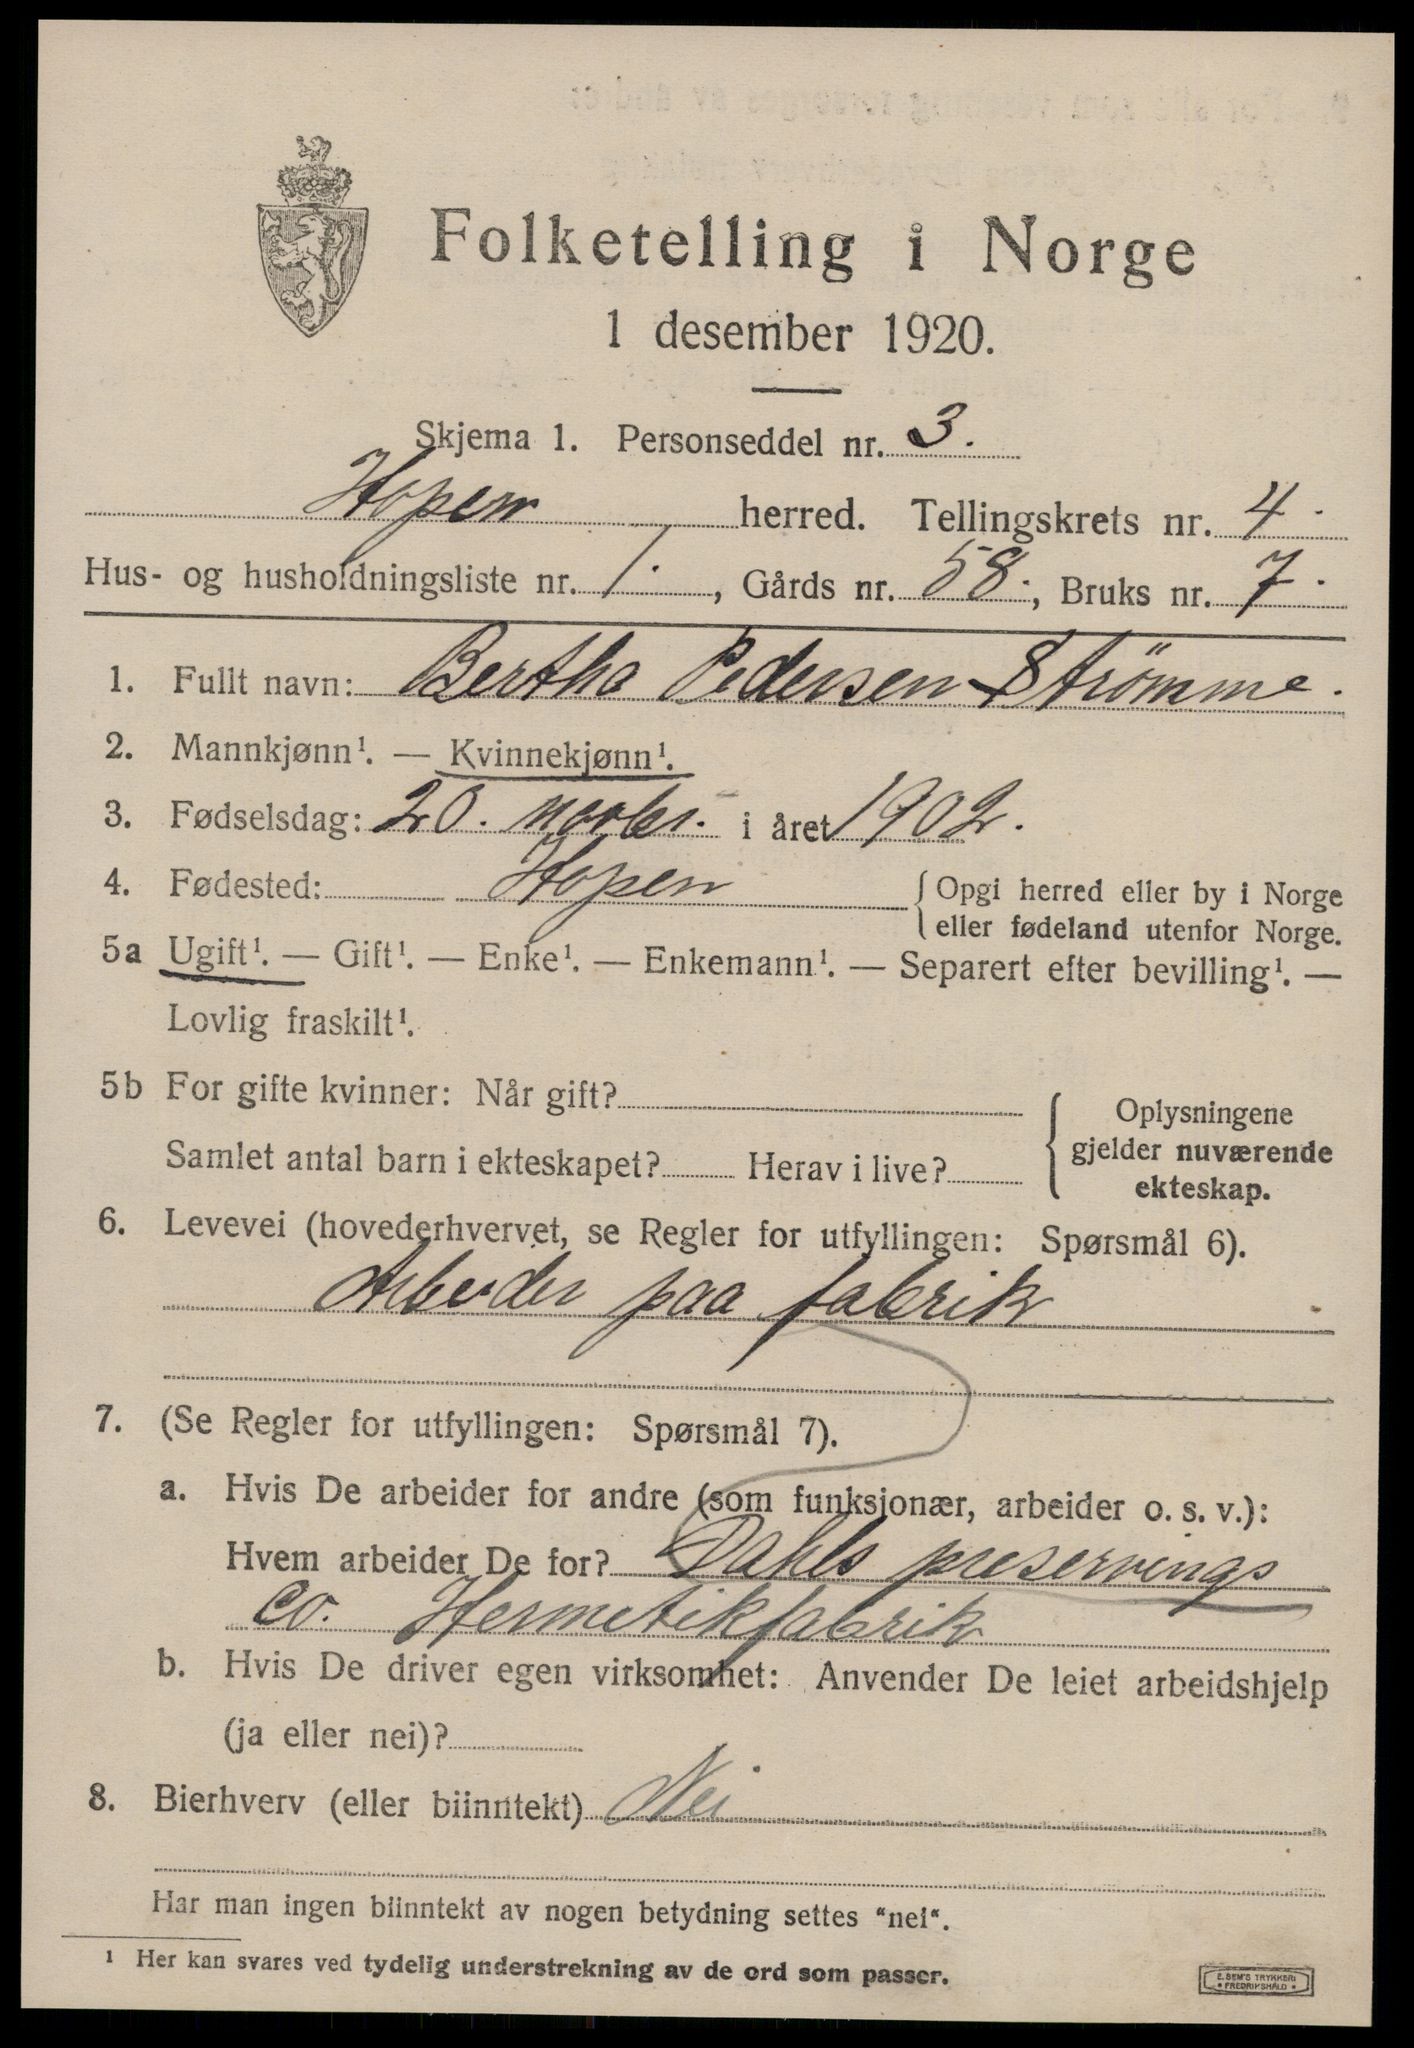 Folketelling i Norge
1 desember 1920.
Skjema 1. Personseddel nr. 3.
Hopen herred. Tellingskrets nr. 4.
Hus- og husholdningsliste nr. 1., Gårds nr. 58., Bruks nr. 7.
1. Fullt navn: Bertha Pedersen Strömme.
2. Mannkjønn¹. — Kvinnekjønn¹.
3. Fødselsdag: 20. novbr. i året 1902.
4. Fødested: Hopen { Opgi herred eller by i Norge
eller fødeland utenfor Norge.
5a Ugift¹. — Gift¹. — Enke¹. — Enkemann¹. — Separert efter bevilling¹. —
Lovlig fraskilt¹.
5b For gifte kvinner: Når gift?
Samlet antal barn i ekteskapet? Herav i live?
Oplysningene
gjelder nuværende
ekteskap.
6. Levevei (hovederhvervet, se Regler for utfyllingen: Spørsmål 6).
Arbeider paa fabrik
7. (Se Regler for utfyllingen: Spørsmål 7).
a. Hvis De arbeider for andre (som funksjonær, arbeider o. s. v.):
Hvem arbeider De for? Dahls preservings
co. Hermetikfabrik
b. Hvis De driver egen virksomhet: Anvender De leiet arbeidshjelp
(ja eller nei)?
8. Bierhverv (eller biinntekt) Nei
Har man ingen biinntekt av nogen betydning settes "nei".
¹ Her kan svares ved tydelig understrekning av de ord som passer.
E. SEM'S TRYKKERI
• FREDRIKSHALD •